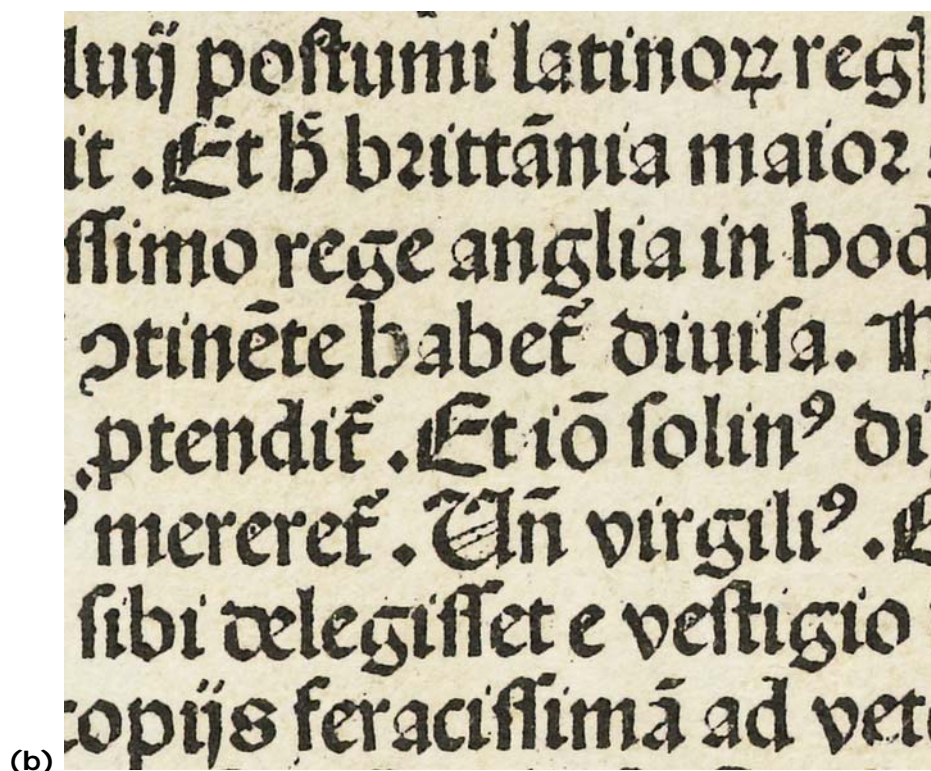 luij poſtumi latinoꝝ reg
it . Et h̄ brittānia maior
ſſimo rege anglia in hod
ꝯtinēte habet᷑ diuiſa .
ꝓtendit᷑ . Et iō ſolinꝰ di
mereret᷑ . Un̄ virgiliꝰ .
ſibi delegiſſet e veſtigio
copijs feraciſſimā ad vet
(b)